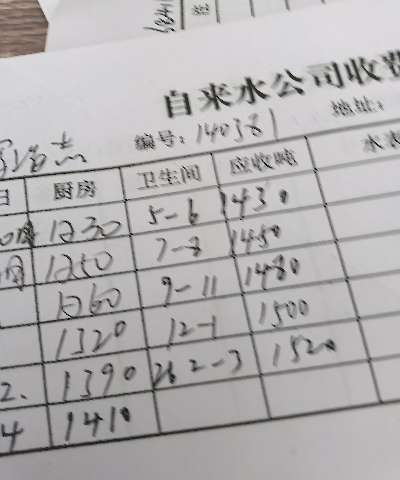 自来水公司收费
编号: 140381 地址:
日 厨房 卫生间 应收吨 水表
1230 5-6 1430
月 1250 7-8 1450
1260 9-11 1480
1320 12-1 1500
2. 1390 2-3 1520
4 1410